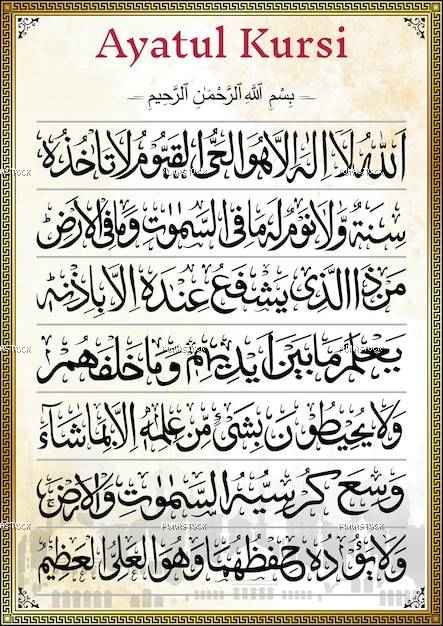 Ayatul Kursi
بِسْمِ اللَّهِ الرَّحْمَنِ الرَّحِيمِ
اَللّٰهُ لَاۤ اِلٰهَ اِلَّا هُوَ الْحَیُّ الْقَیُّوْمُ لَا تَاْخُذُهٗ
سِنَةٌ وَّلَا نَوْمٌ لَهٗ مَا فِی السَّمٰوٰتِ وَمَا فِی الْاَرْضِ
مَنْ ذَا الَّذِیْ یَشْفَعُ عِنْدَهٗۤ اِلَّا بِاِذْنِهٖ
یَعْلَمُ مَا بَیْنَ اَیْدِیْهِمْ وَمَا خَلْفَهُمْ
وَلَا یُحِیْطُوْنَ بِشَیْءٍ مِّنْ عِلْمِهٖۤ اِلَّا بِمَا شَآءَ
وَسِعَ كُرْسِیُّهُ السَّمٰوٰتِ وَالْاَرْضَ
وَلَا یَـُٔوْدُهٗ حِفْظُهُمَا وَهُوَ الْعَلِیُّ الْعَظِیْمُ